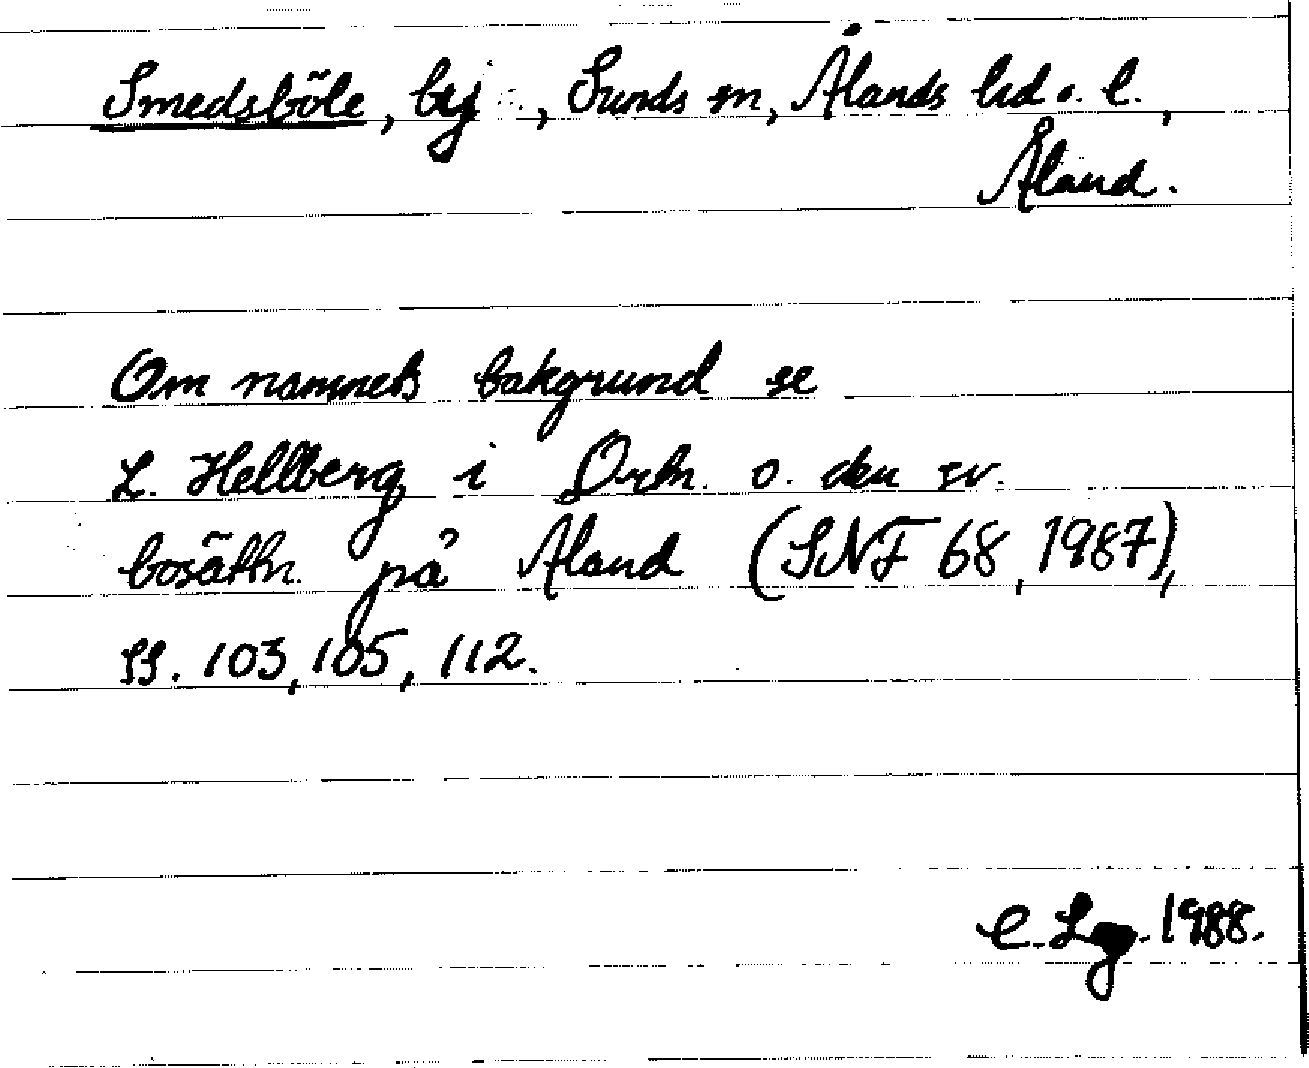 Smedsböle, by, Sunds sn, Ålands hd o. l.,
Åland.
Om namnets bakgrund se
L. Hellberg i Ortn. o. den sv.
bosättn. på Åland (SNF 68, 1987),
ss. 103, 105, 112.
C. Lg. 1988.